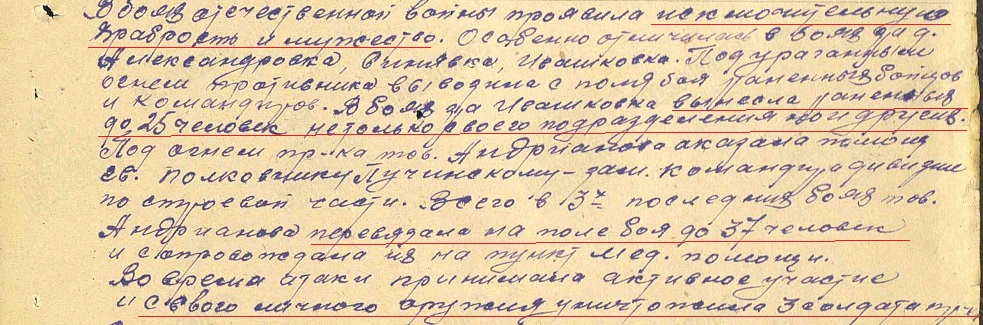 В боях отечественной войны проявила исключительную
храбрость и мужество. Особенно отличилась в боях за д.
Александровка, Синявка, Ивашковка. Под ураганным
огнем противника выводила с поля боя раненных бойцов
и командиров. В боях за Ивашковка вынесла раненных
до 25 человек не только своего подразделения но и других.
Под огнем пр-ка тов. Андрианова аказала помощь
св. полковнику Пучинскому - зам. командира дивизии
по строевой части. Всего в 3х последних боях тов.
Андрианова перевязала на поле боя до 37 человек
и сопровождала их на пункт мед. помощи.
Во время атаки принимала активное участие
и с своего личного оружия уничтожила 3 солдата пр-ка